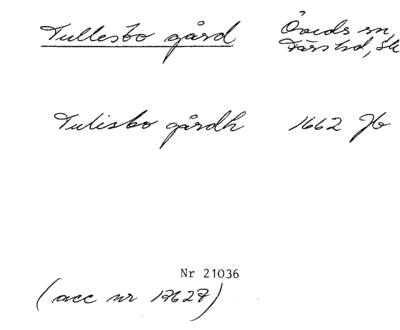 Tullesbo gård Öveds sn,
Färs hd, Sk
Tulisbo gårdh 1662 Jb
Nr 21036
(acc nr 17627)